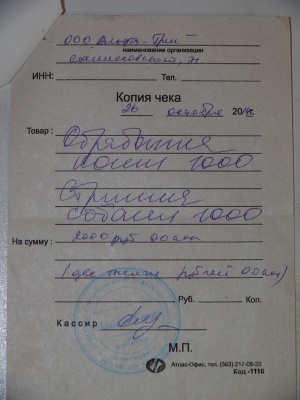 ООО Альфа-Грин
наименование организации
ИНН: Тел.
Копия чека
26 октября 20
Товар:
Обработка
1000
Стрижка
собаки 1000
На сумму: 2000 руб 00 коп
(две тысячи рублей 00 коп)
Руб. Коп.
Кассир
М.П.
Атлас-Офис, тел. (383) 217-09-22
Код -1116